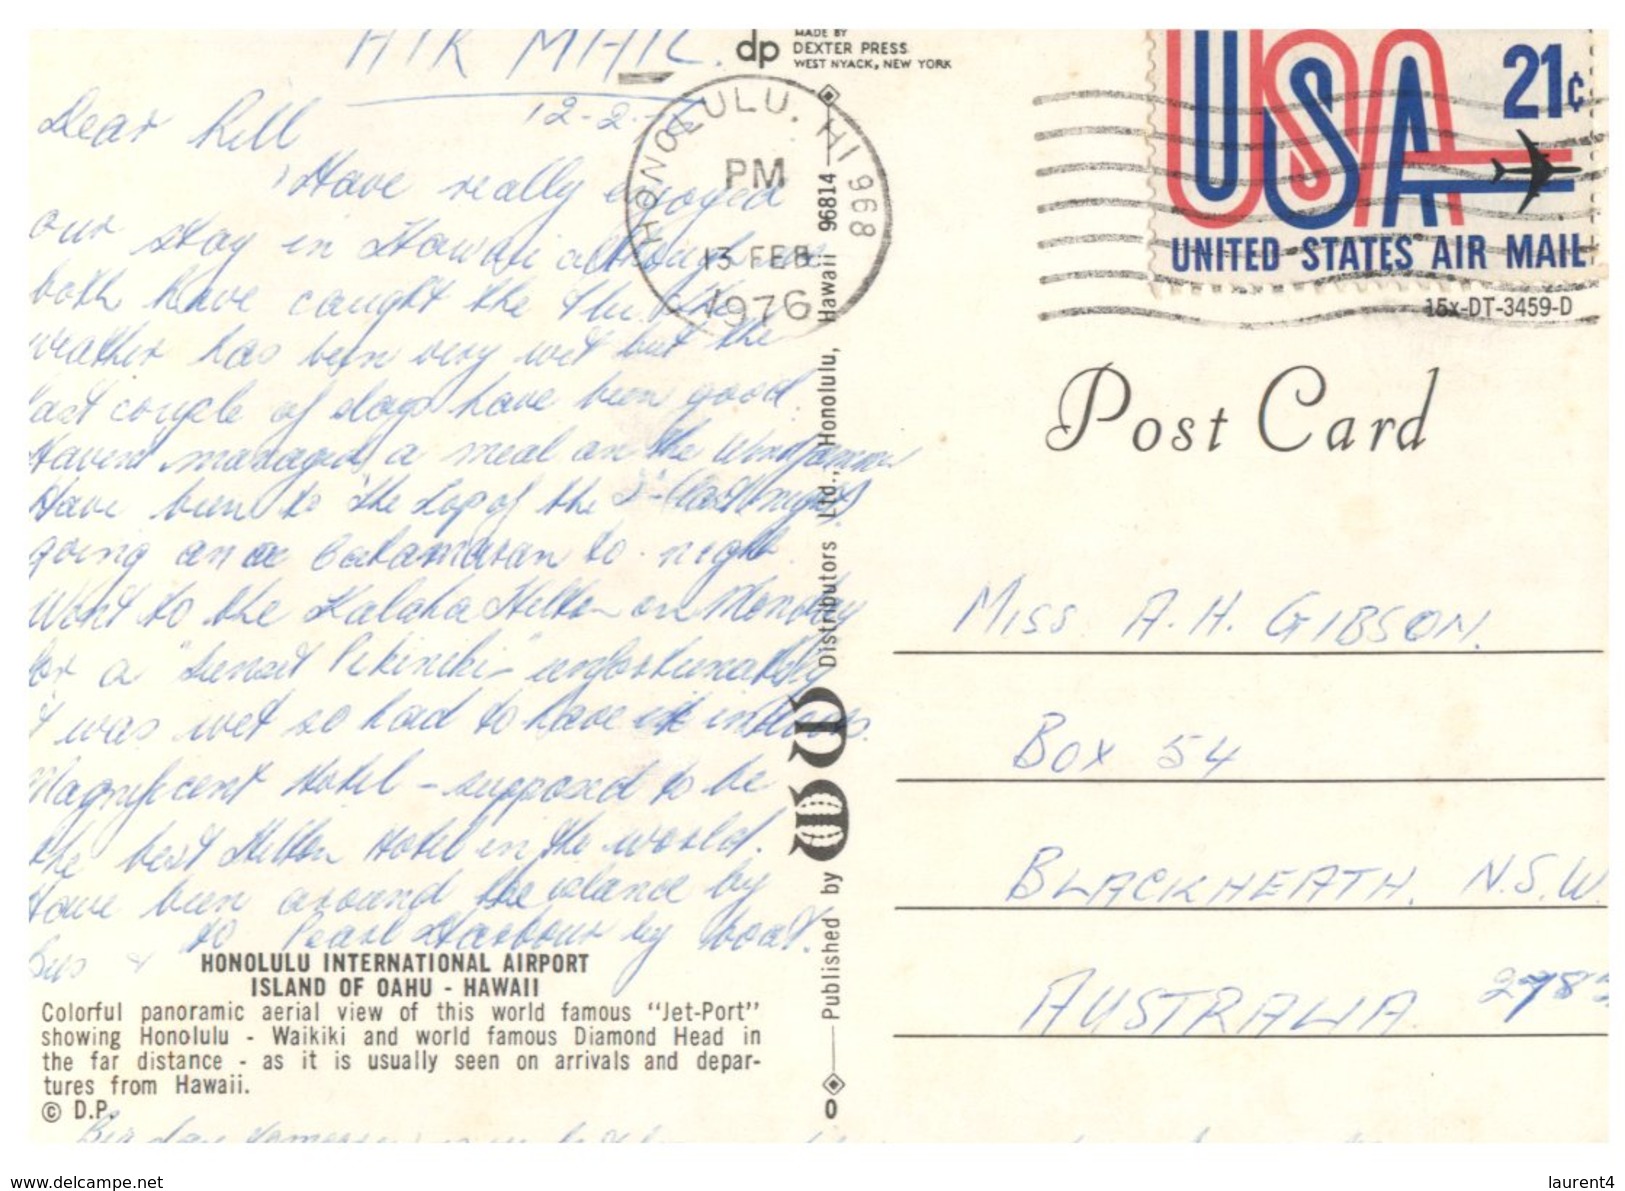 AIR MAIL.
12-2-76
Dear Lill
Have really enjoyed
our stay in Hawaii although we
both have caught the flu. The
weather has been very wet but the
last couple of days have been good.
Haven't managed a meal on the Windjammer
Have been to the top of the I- (last night)
going on a catamaran to-night.
Went to the Kalaha Hilton on Monday
for a "Sunset Pikiniki" - unfortunately
it was wet so had to have it indoors.
Magnificent Hotel - supposed to be
the best Hilton Hotel in the world.
Have been around the island by
bus & to Pearl Harbour by boat.
HONOLULU INTERNATIONAL AIRPORT
ISLAND OF OAHU - HAWAII
Colorful panoramic aerial view of this world famous "Jet-Port"
showing Honolulu - Waikiki and world famous Diamond Head in
the far distance - as it is usually seen on arrivals and depar-
tures from Hawaii.
© D.P.
Big day tomorrow
dp MADE BY
DEXTER PRESS
WEST NYACK, NEW YORK
HONOLULU, HI 968
PM
13 FEB
1976
Published by Distributors Ltd., Honolulu, Hawaii 96814
0
USA 21¢
UNITED STATES AIR MAIL
15x-DT-3459-D
Post Card
MISS A.H. GIBSON.
BOX 54
BLACKHEATH. N.S.W.
AUSTRALIA 2785
www.delcampe.net
laurent4